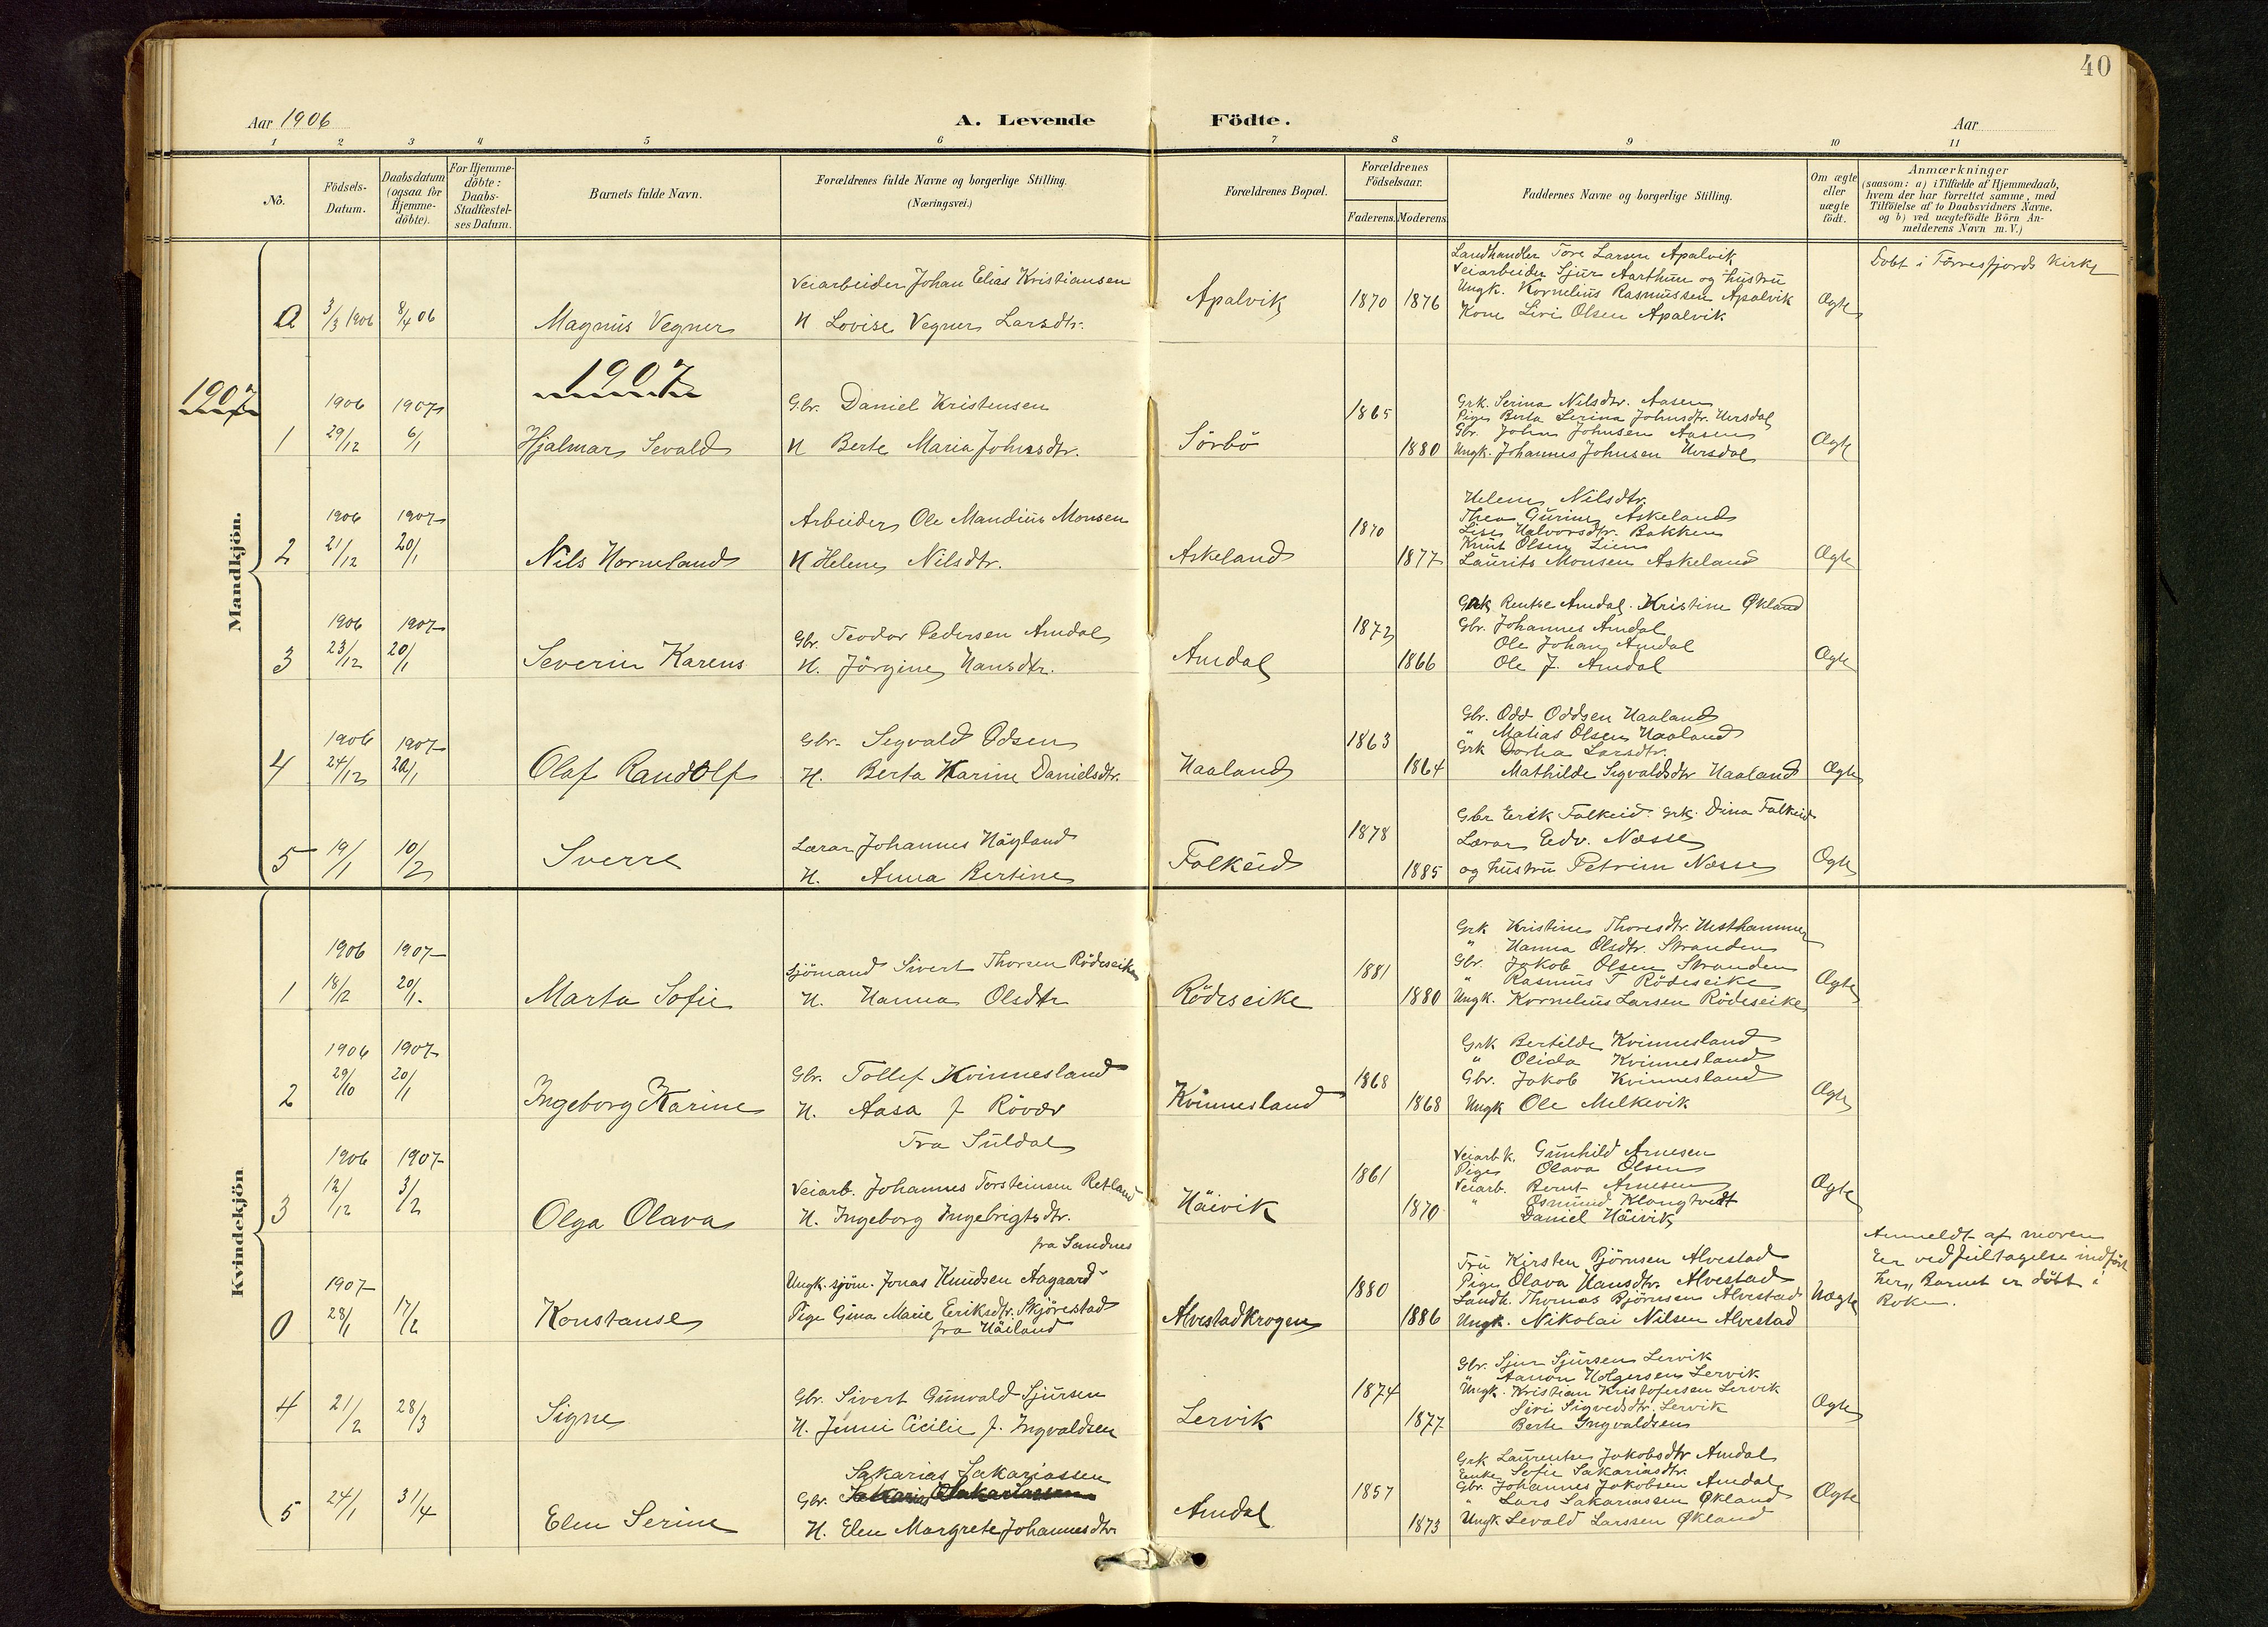 40
Aar 1906
A. Levende Födte.
Aar
1 2 3 4 5 6 7 8 9 10 11
No.
Födsels-Datum.
Daabsdatum (ogsaa for Hjemme-döbte).
For Hjemme-döbte: Daabs-Stadfæstel-ses Datum.
Barnets fulde Navn.
Forældrenes fulde Navne og borgerlige Stilling.
(Næringsvei.)
Forældrenes Bopæl.
Forældrenes Födselsaar.
Faderens. Moderens.
Faddernes Navne og borgerlige Stilling.
Om ægte eller uægte födt.
Anmærkninger
(saasom: a) i Tilfælde af Hjemmedaab,
hvem der har forrettet samme, med
Tilföielse af to Daabsvidners Navne.
og b) ved uægtefödte Börn An-
melderens Navn m.V.)
Mandkjön.
0 3/3 1906 8/4 06
Magnus Vegner
Veiarbeider Johan Elias Kristiansen
H Lovise Vegner Larsdtr.
Apalvik
1870 1876
Landhandler Tore Larsen Apalvik
Veiarbeider Sjur Aarthun og hustru
Ungk. Kornelius Rasmussen Apalvik
Kone Livi Olsen Apalvik
Ægte
Döbt i Förresfjords Kirke
1907
1907
1 1906 29/12 1907 6/1
Hjalmar Sevald
Gbr. Daniel Kristensen
H Berte Maria Johnsdtr.
Sörbö
1865
1880
Grk. Serina Nilsdtr. Aasen
Pige Berta Serina Johnsdtr. Uersdal
Gbr. John Johnsen Aasen
Ungk. Johannes Johnsen Uersdal
Ægte
2 1906 21/12 1907 20/1
Nils Horneland
Arbeider Ole Mandius Monsen
H Helene Nilsdtr.
Askeland
1870
1877
Helene Nilsdtr.
Thea Gurine Askeland
Lise Halvorsdtr. Bakken
Knut Olsen Lien
Laurits Monsen Askeland
Ægte
3 1906 23/12 1907 20/1
Severin Karens
Gbr. Teodor Pedersen Amdal
H. Jörgine Hansdtr.
Amdal
1872
1866
Grk. Rentse Amdal. Kristine Økland
Gbr. Johannes Amdal
Ole Johan Amdal
Ole J. Amdal
Ægte
4 1906 24/12 1907 20/1
Olaf Randolf
Gbr. Segvald Odsen
H. Berta Karine Danielsdtr.
Haaland
1863
1864
Gbr. Odd Oddsen Haaland
" Matias Olsen Haaland
Grk Dorhea Larsdtr.
Mathilde Sigvaldsdtr Haaland
Ægte
5 19/1 10/2
Sverre
Lærar Johannes Höyland
H. Anna Bertine
Falkeid
1878
1885
Gbr Erik Falkeid. Grk. Dina Falkeid
Lærar Edv. Næsse
og hustru Petrine Næsse
Ægte
Kvindekjön
1 1906 18/12 1907 20/1.
Marta Sofie
Sjömand Sivert Thorsen Rödeseike
H. Hanna Olsdtr
Rödeseike
1881
1880
Grk Kristine Thoresdtr. Uesthammer
" Hanna Olsdtr. Stranden
Gbr. Jakob Olsen Stranden
" Rasmus T Rödeseike
Ungk. Kornelius Larsen Rödeseike
Ægte
2 1906 29/10 1907 20/1
Ingeborg Karine
Gbr. Tollef Kvinnesland
H. Aasa f Rövær
Kvinnesland
1868
1868
Grk Bertilde Kvinnesland
" Olida Kvinnesland
Gbr. Jakob Kvinnesland
Ungk Ole Melkevik
Ægte
3 1906 12/12 1907 3/2
Olga Olava
Fra Suldal
Veiarb. Johannes Torsteinsen Retland
H. Ingeborg Ingebrigtsdtr.
Häivik
1861
1870
Veiarb k. Gunhild Arnesen
Pige Olava Olsen
Veiarb. Bernt Arnesen
" Osmund Klongtvedt
Daniel Häivik
Ægte
0 1907 28/1 17/2
Konstanse
fra Sandnes
Ungk. sjöm. Jonas Knudsen Aagaard
Pige Gina Marie Eriksdtr. Skjörestad
fra Häiland
Alvestadkrogen
1880
1886
Fru Kirsten Björnsen Alvestad
Pige Olava Hansdtr. Alvestad
Landh. Thomas Björnsen Alvestad
Ungk. Nikolai Nilsen Alvestad
Uægte
Anmeldt af moren
Er ved feiltagelse indfört
her, Barnet er döbt i
Bokn.
4 21/2 28/3
Signe
Gbr. Sivert Gunvald Sjursen
H. Jenni Cicilie f. Ingvaldsen
Lervik
1874
1877
Gbr. Sjur Sjursen Lervik
" Aanon Holgersen Lervik
Ungk. Kristian Kristofersen Lervik
Siri Sigvedsdtr. Lervik
Berte Yngvaldsen
Ægte
5 24/1 31/4
Elen Serine
Sakarias Sakariassen
Gbr.
H. Elen Margrete Johannesdtr
Amdal
1857
1873
Grk Laurentse Jakobsdtr Amdal
Enke Sofie Sakariasdtr.
Gbr. Johannes Jakobsen Amdal
" Lars Sakariassen Økland
Ungk Sevald Larssen Økland
Ægte